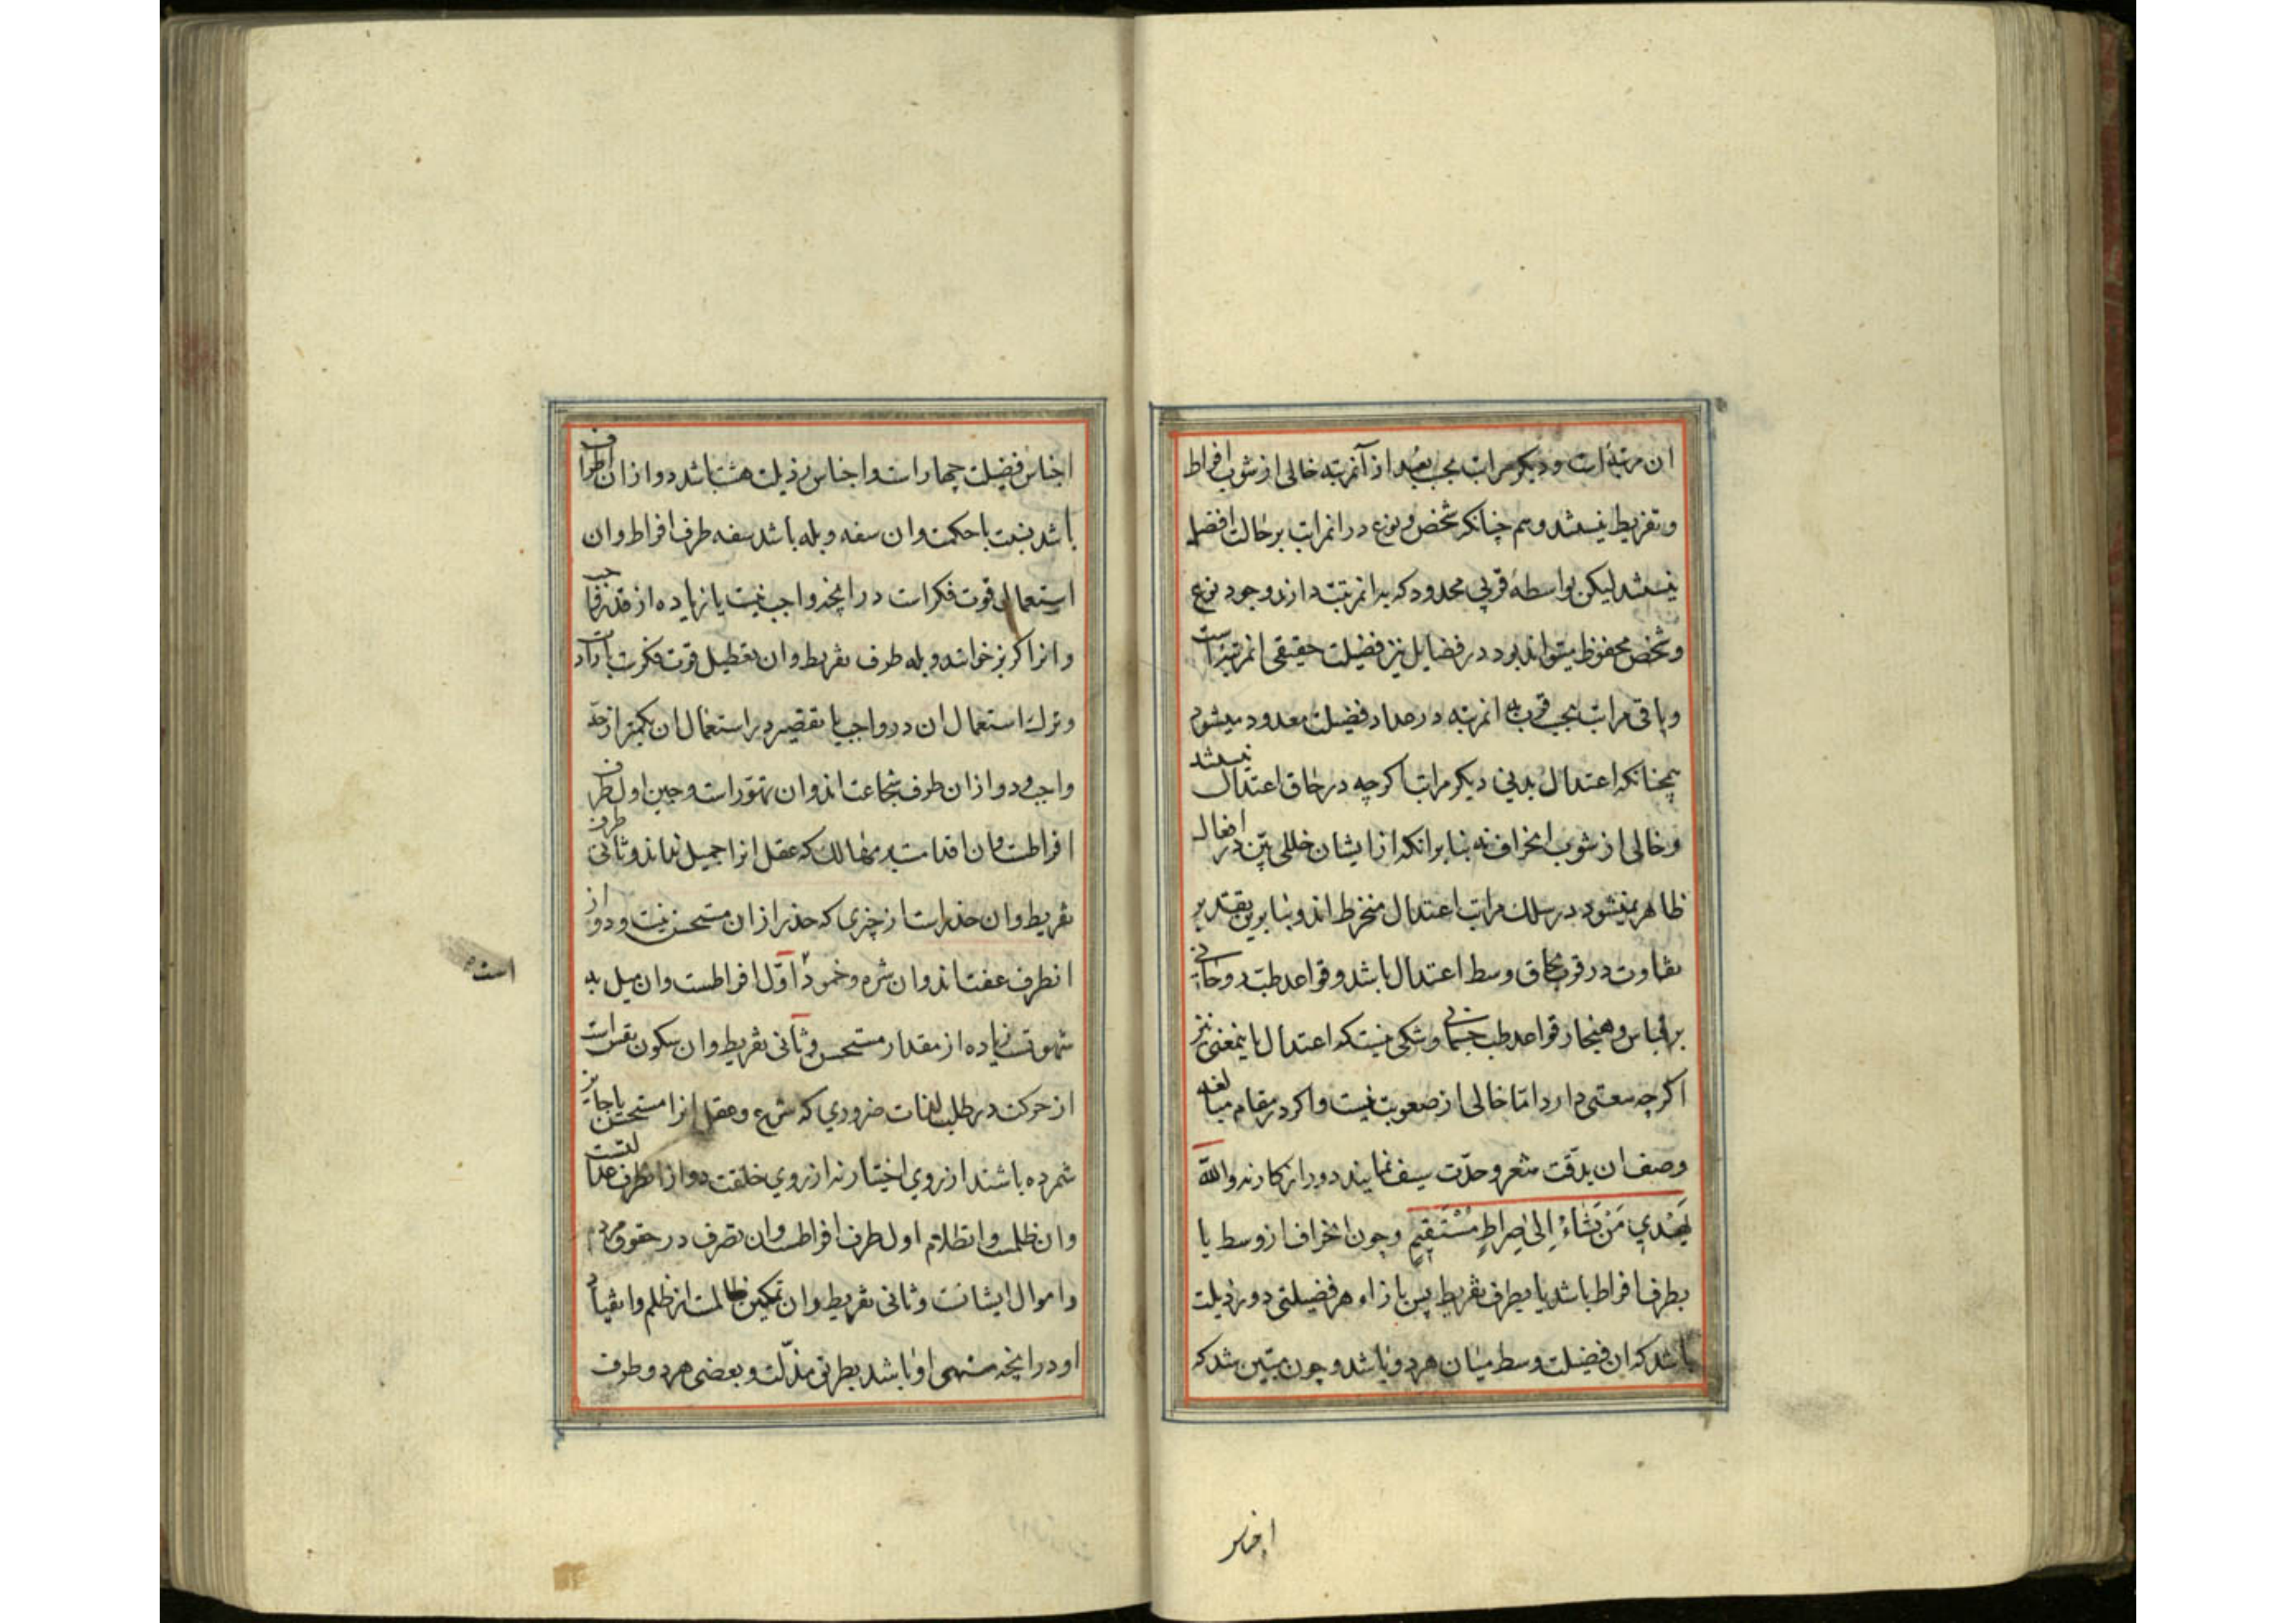 ان مرتبهٔ است و دیکر مراتب بحسب بعد از آنمرتبه خالی از شوب افراط
و تفریط نیستند و هم چنانکه شخص و نوع در انمراتب بر حالت افضل
نیستند لیکن بواسطهٔ قربی محدود که بدانمرتبت دارند وجود نوع
و شخص محفوظ میتواند بود در فضایل نیز فضیلت حقیقی انمرتبه است
و باقی مراتب بحسب قرب بانمرتبه در عداد فضیلت معدود میشود
همچنانکه اعتدال بدنی دیکر مراتب اکرچه در حاق اعتدال نیستند
و خالی از شوب انحراف نه بنا برانکه از ایشان خللی بیّن در افعال
ظاهر نمیشود در سلک مراتب اعتدال منخرط اند و بنابرین بقدر
تفاوت در قرب بحاق وسط اعتدال باشد و قواعد طب روحانی
بر قیاس و هنجار قواعد طب جسمانی و شکی نیست که اعتدال باینمعنی نیز
اکرچه سعتی دارد امّا خالی از صعوبت نیست و اکر در مقام مبالغه
وصف ان بدقّت شعر و حدّت سیف نمایند دور از کار نه والله
یَهْدِي مَنْ یَشَاءُ اِلیٰ صِراطٍ مُسْتَقِیمٍ و چون انحراف از وسط یا
بطرف افراط باشد یا بطرف تفریط پس بازاء هر فضیلتی دو رذیلت
باشد که ان فضیلت وسط میان هر دو باشد و چون مبیّن شد که
اجناس
اجناس فضیلت چهار است و اجناس رذیلت هشت باشد دو از ان اطراف
باشد نسبت با حکمت و ان سفه و بله باشد سفه طرف افراط و ان
استعمال قوت فکر است در انچه واجب نیست یا زیاده از قدر واجب
و انرا کربز خوانند و بله طرف تفریط و ان تعطیل قوت فکرت بارادت
و ترک استعمال ان در واجب یا تقصیر در استعمال ان بکمتر از حدّ
واجب و دو از ان طرف شجاعت اند و ان تهوّر است و جبن اول طرف
افراطست و ان اقدامست بر مهالک که عقل انرا جمیل نداند و ثانی طرف
تفریط و ان حذر است از چیزی که حذر از ان مستحسن نیست و دو از
انطرف عفت اند و ان شره و خمود اوّل افراطست و ان میل به
است
شهوتست زیاده از مقدار مستحسن و ثانی تفریط و ان سکون نفس است
از حرکت در طلب لذات ضروري که شرع و عقل انرا مستحسن یا جایز
شمرده باشند از روي اختیار نه از روي خلقت دو از انطرف عدالتست
و ان ظلمست و انظلام اول طرف افراطست و ان تصرف در حقوق مردم
و اموال ایشانست و ثانی تفریط و ان تمکین ظالمست از ظلم و انقیاد
او در انچه منهی او باشد بطریق مذلّت و بعضی هر دو طرف